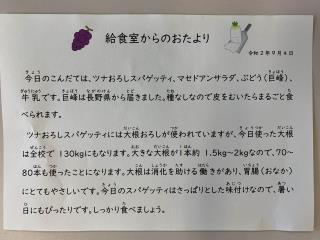 給食室からのおたより
令和2年9月4日
今日のこんだては、ツナおろしスパゲッティ、マセドアンサラダ、ぶどう(巨峰)、
牛乳です。巨峰は長野県から届きました。種なしなので皮をむいたらまるごと食
べられます。
ツナおろしスパゲッティには大根おろしが使われていますが、今日使った大根
は全校で 130kgにもなります。大きな大根が1本約 1.5kg~2kgなので、70~
80本も使ったことになります。大根は消化を助ける働きがあり、胃腸(おなか)
にとてもやさしいです。今日のスパゲッティはさっぱりとした味付けなので、暑い
日にもぴったりです。しっかり食べましょう。